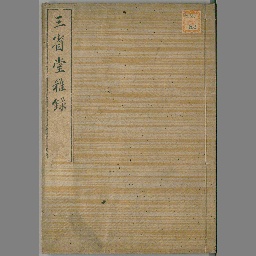 三省堂雜錄